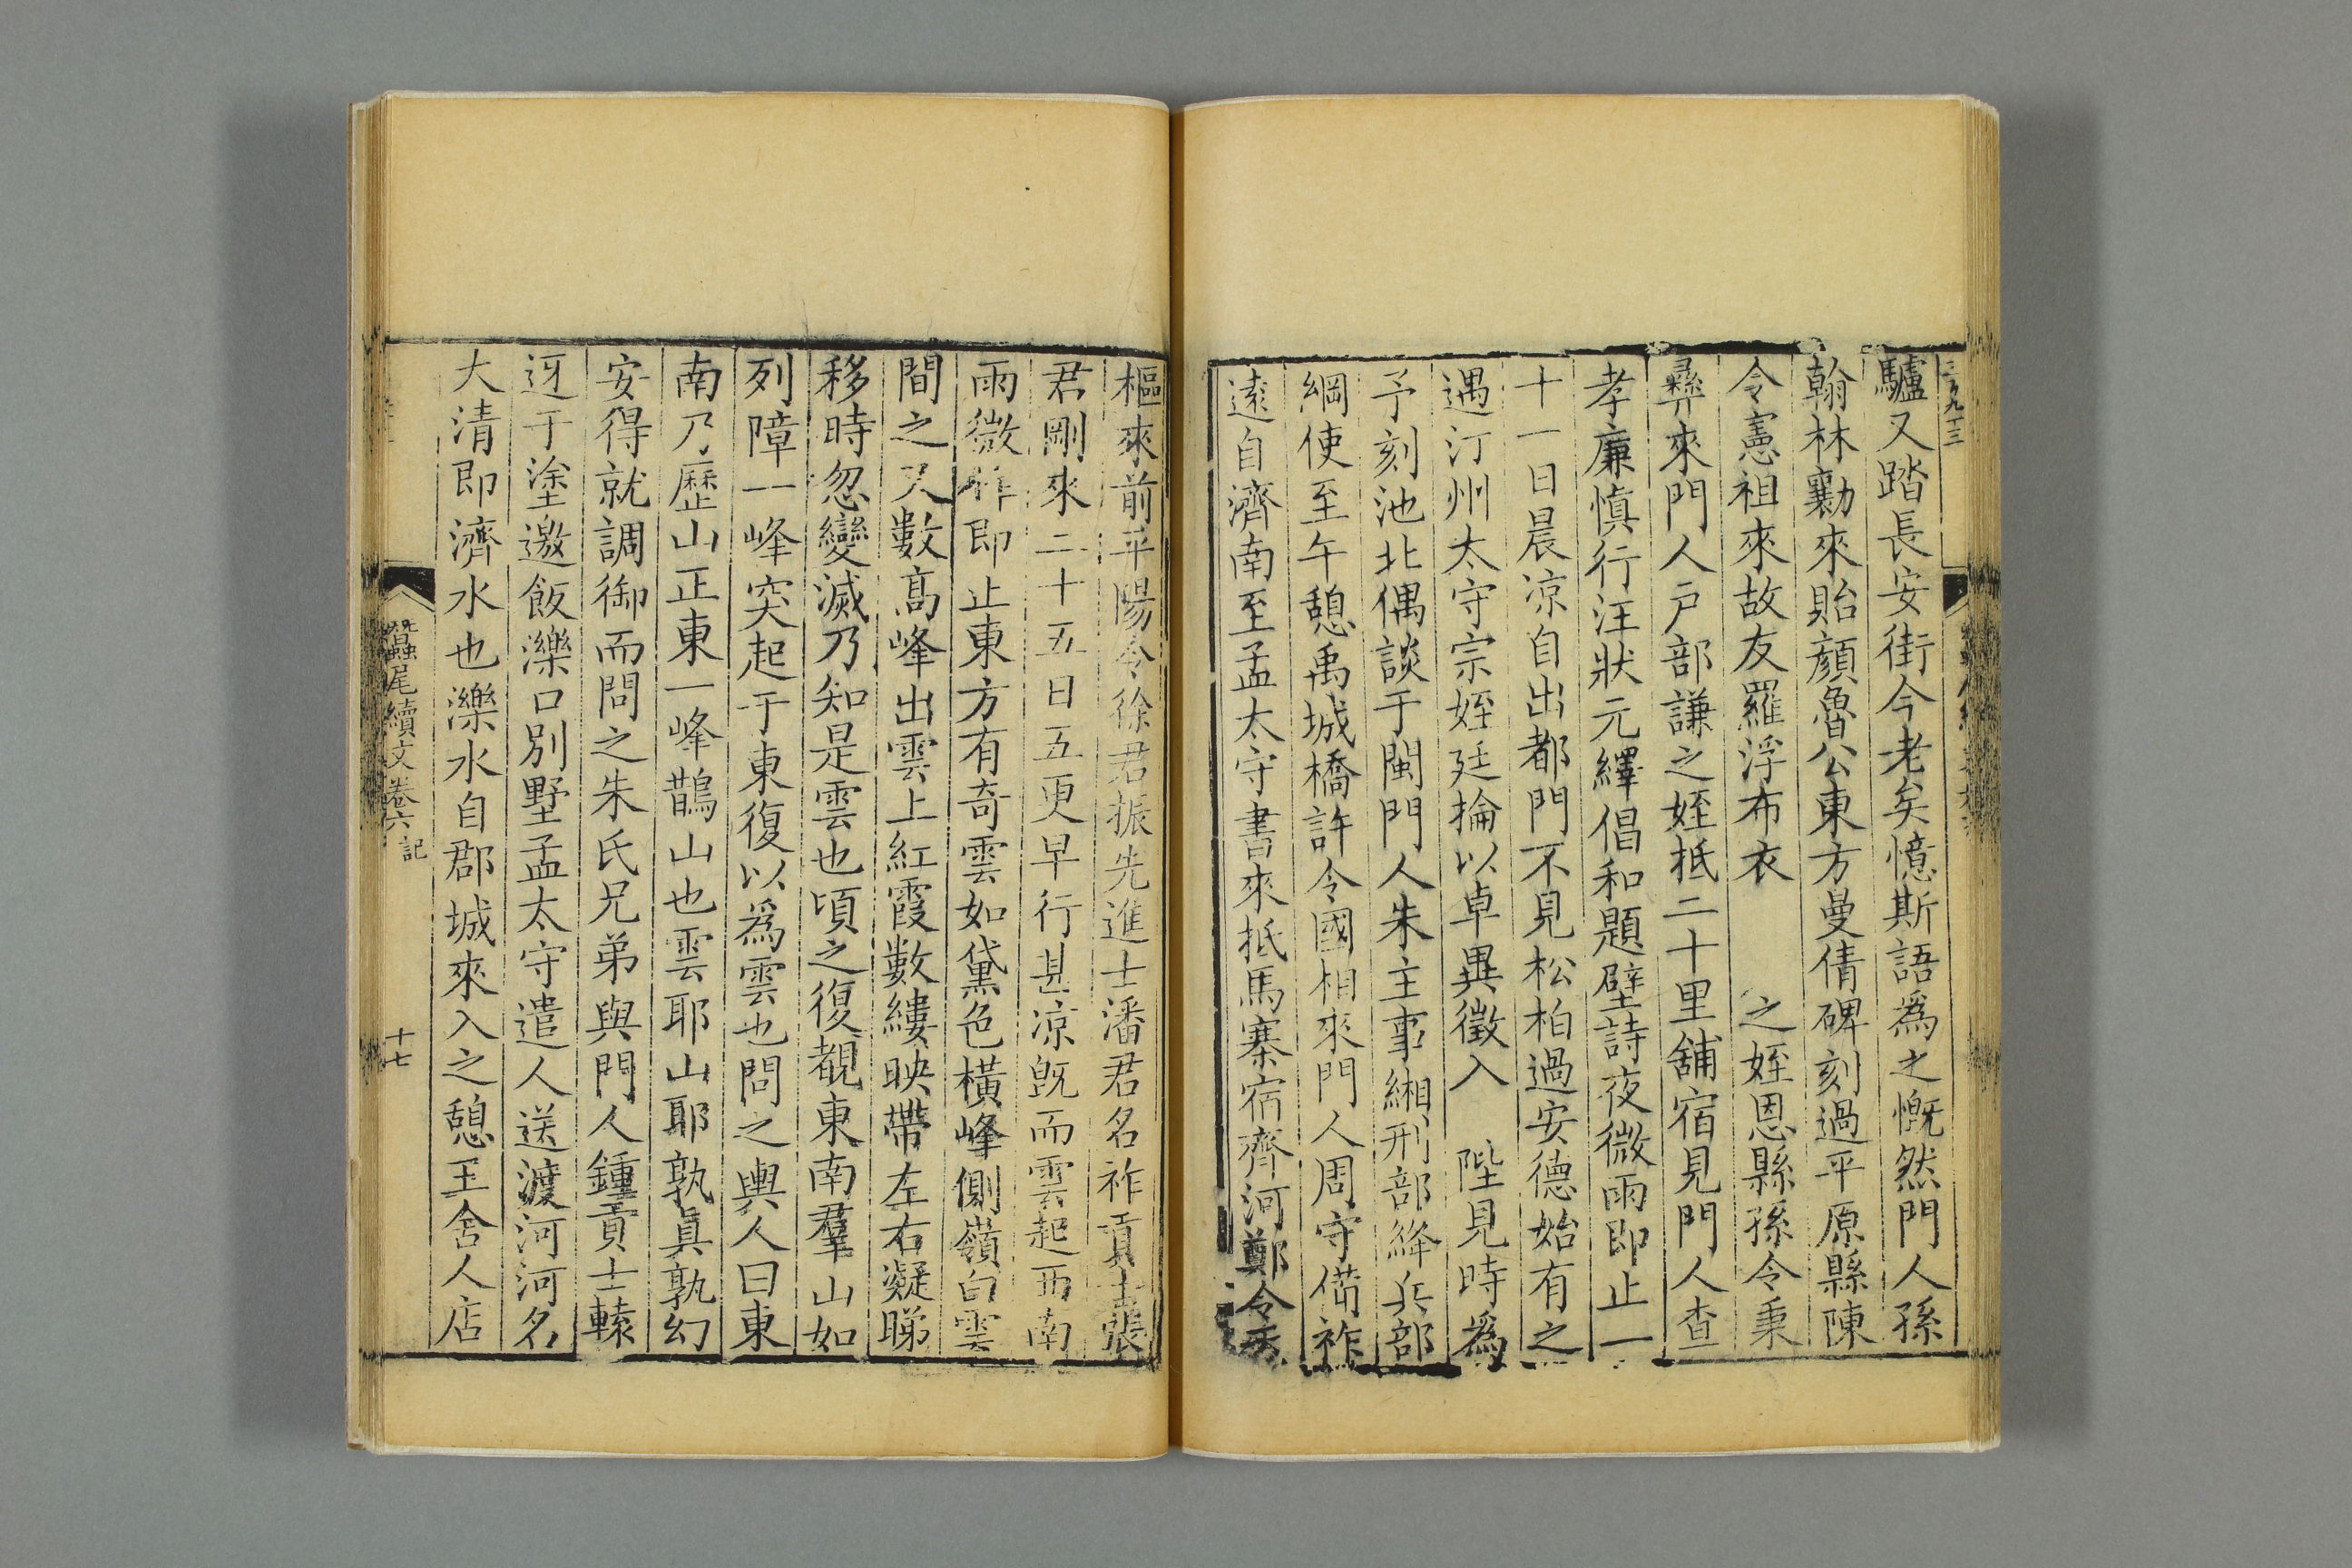 驢又踏長安街今老矣憶斯語為之慨然門人孫
翰林勷來貽顏魯公東方曼倩碑刻過平原縣陳
令憲祖來故友羅浮布衣　之姪恩縣孫令秉
彝來門人戶部謙之姪抵二十里舖宿見門人查
孝廉慎行汪狀元繹倡和題壁詩夜微雨即止一
十一日晨涼自出都門不見松柏過安德始有之
遇汀州太守宗姪廷掄以卓異徵入　陛見時為
予刻池北偶談于閩門人朱主事緗刑部絳兵部
綱使至午憩禹城橋許令國相來門人周守備祚
遠自濟南至孟太守書來抵馬寨宿齊河鄭令秀
樞來前平陽令徐君振先進士潘君名祚貢士張
君剛來二十五日五更早行甚涼既而雲起西南
雨微作即止東方有奇雲如黛色橫峰側嶺白雲
間之又數高峰出雲上紅霞數縷映帶左右凝睇
移時忽變滅乃知是雲也頃之復覩東南羣山如
列障一峰突起于東復以為雲也問之輿人曰東
南乃歷山正東一峰鵲山也雲耶山耶孰真孰幻
安得就調御而問之朱氏兄弟與門人鍾貢士轅
迓于塗邀飯濼口別墅孟太守遣人送渡河河名
大清即濟水也濼水自郡城來入之憩王舍人店
蠶尾續文卷六 記
十七